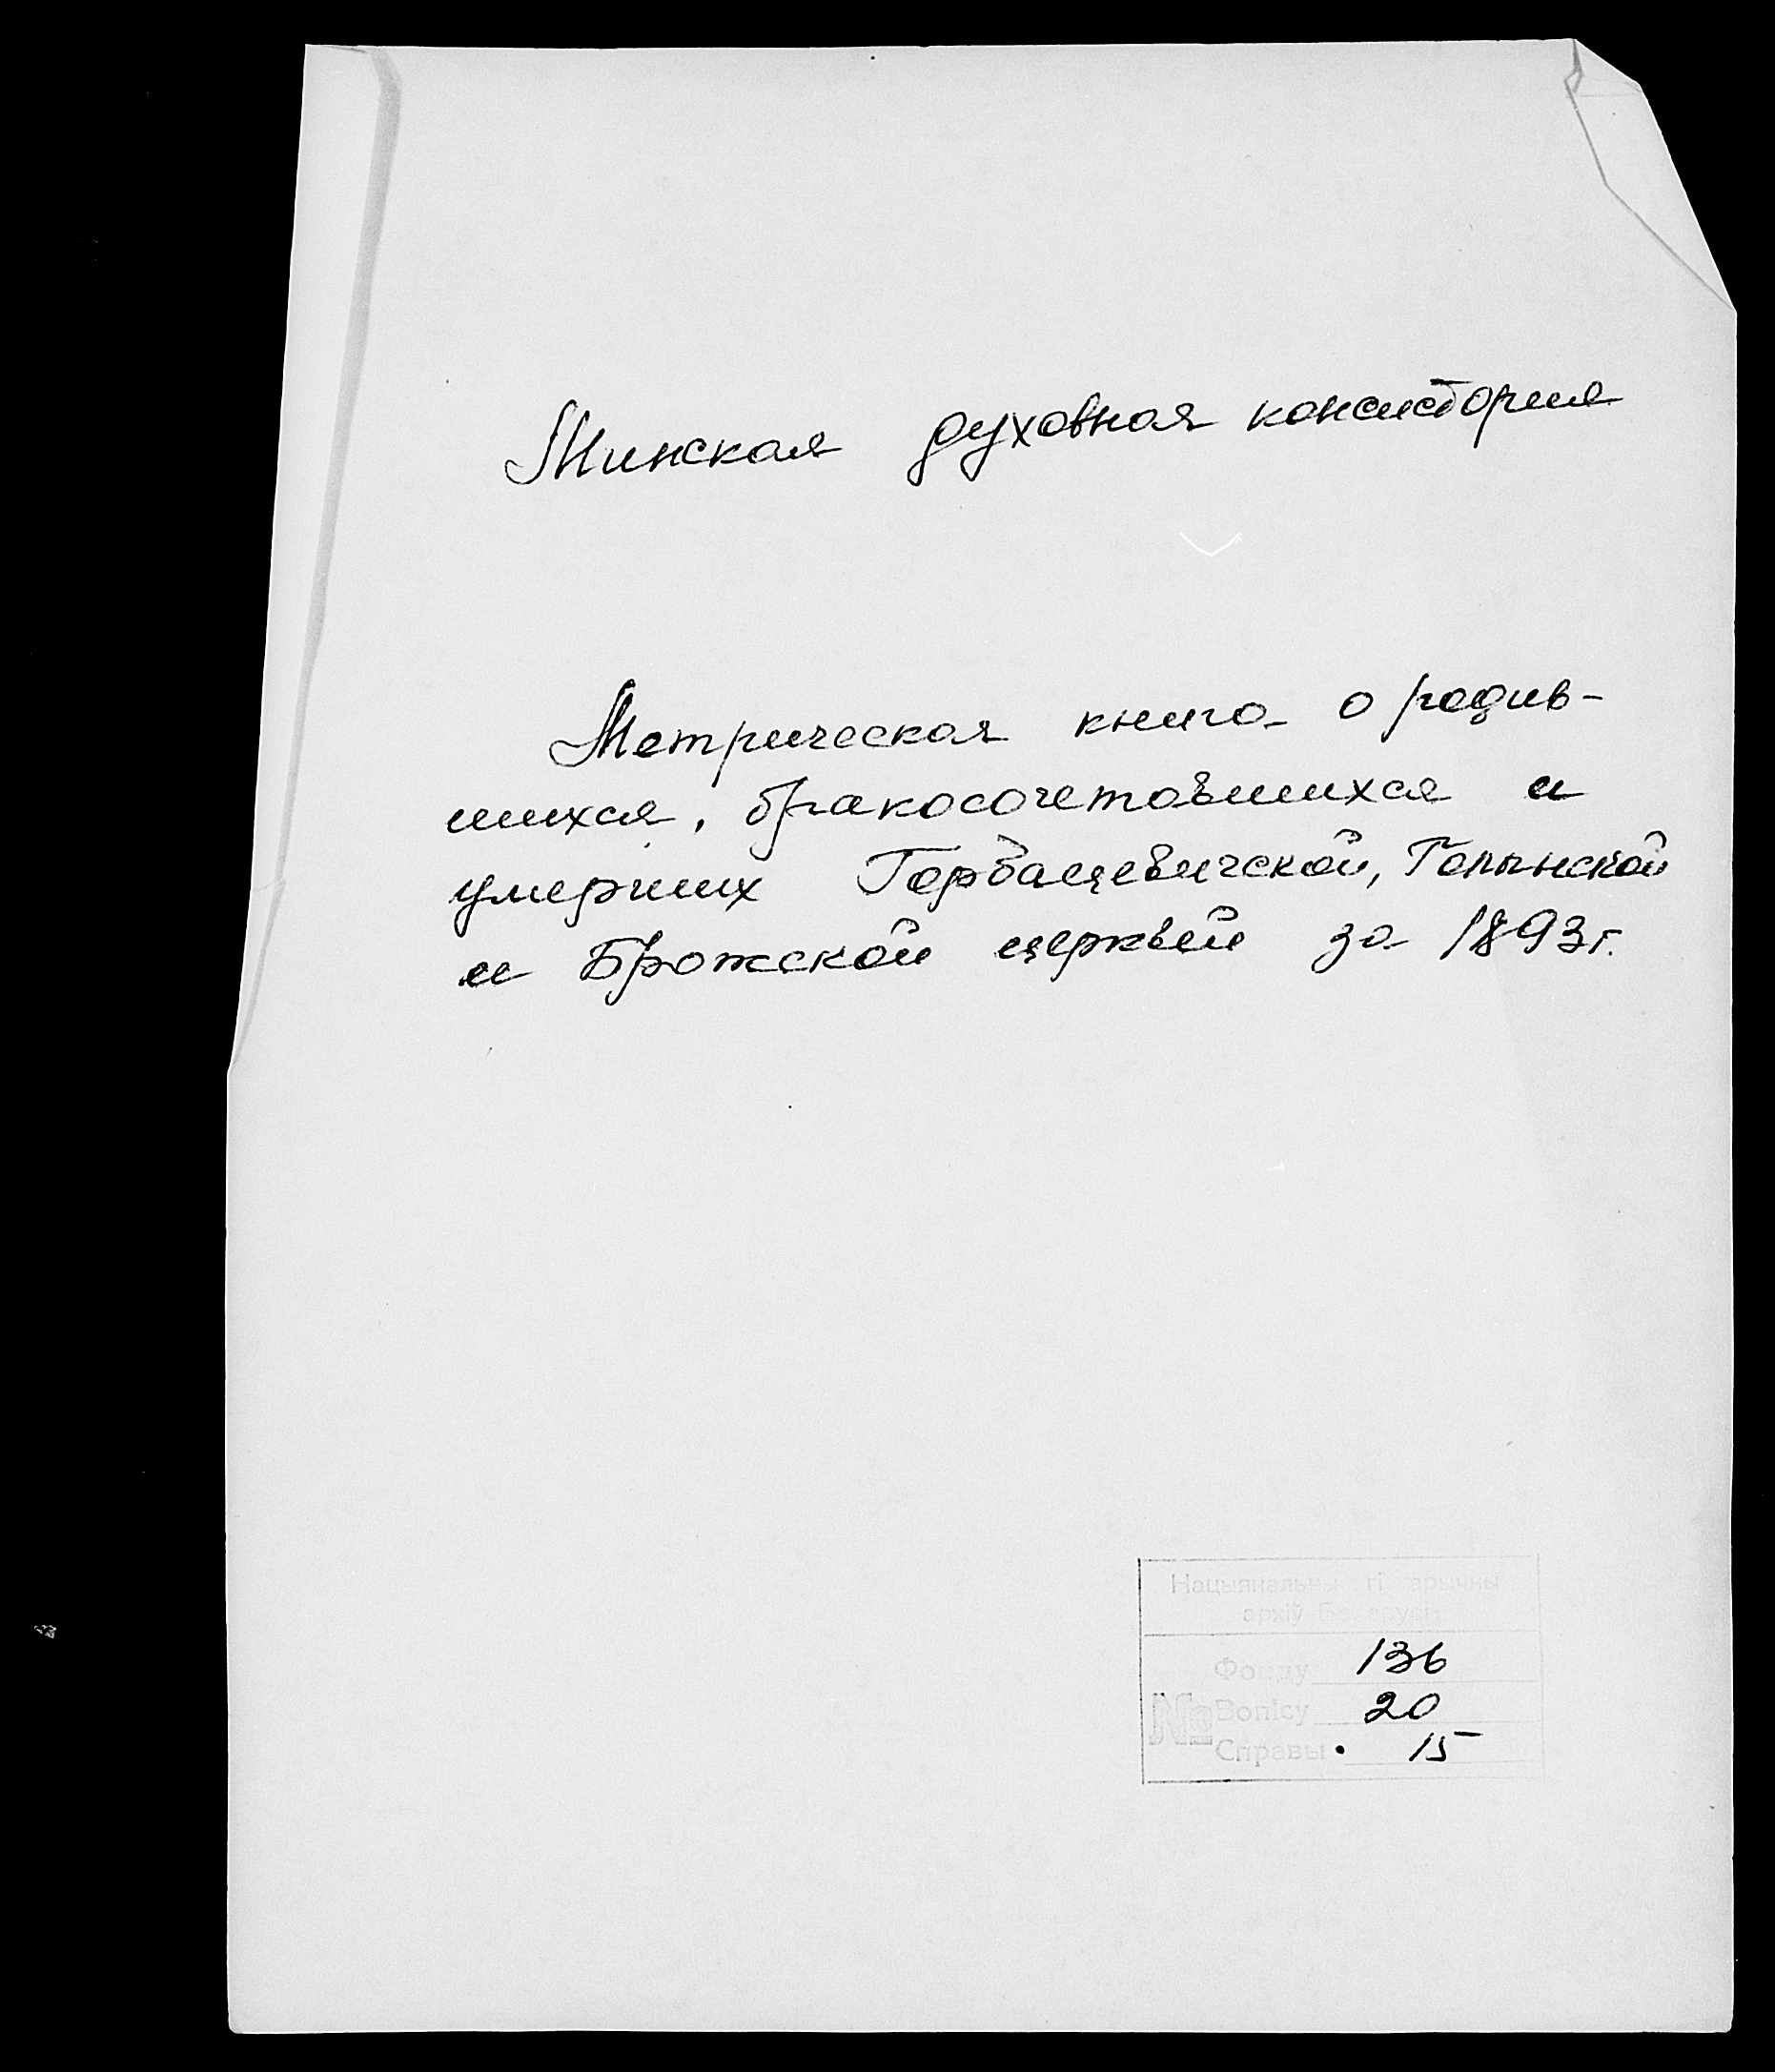 Минская духовная консистория
Метрическая книга о родив-
шихся, бракосочетавшихся и
умерших Горбацевичской, Голынской
и Брожской церквей за 1893г.
Нацыянальны гістарычны
архіў Беларусі
Фонду 136
№ Вопісу 20
Справы 15